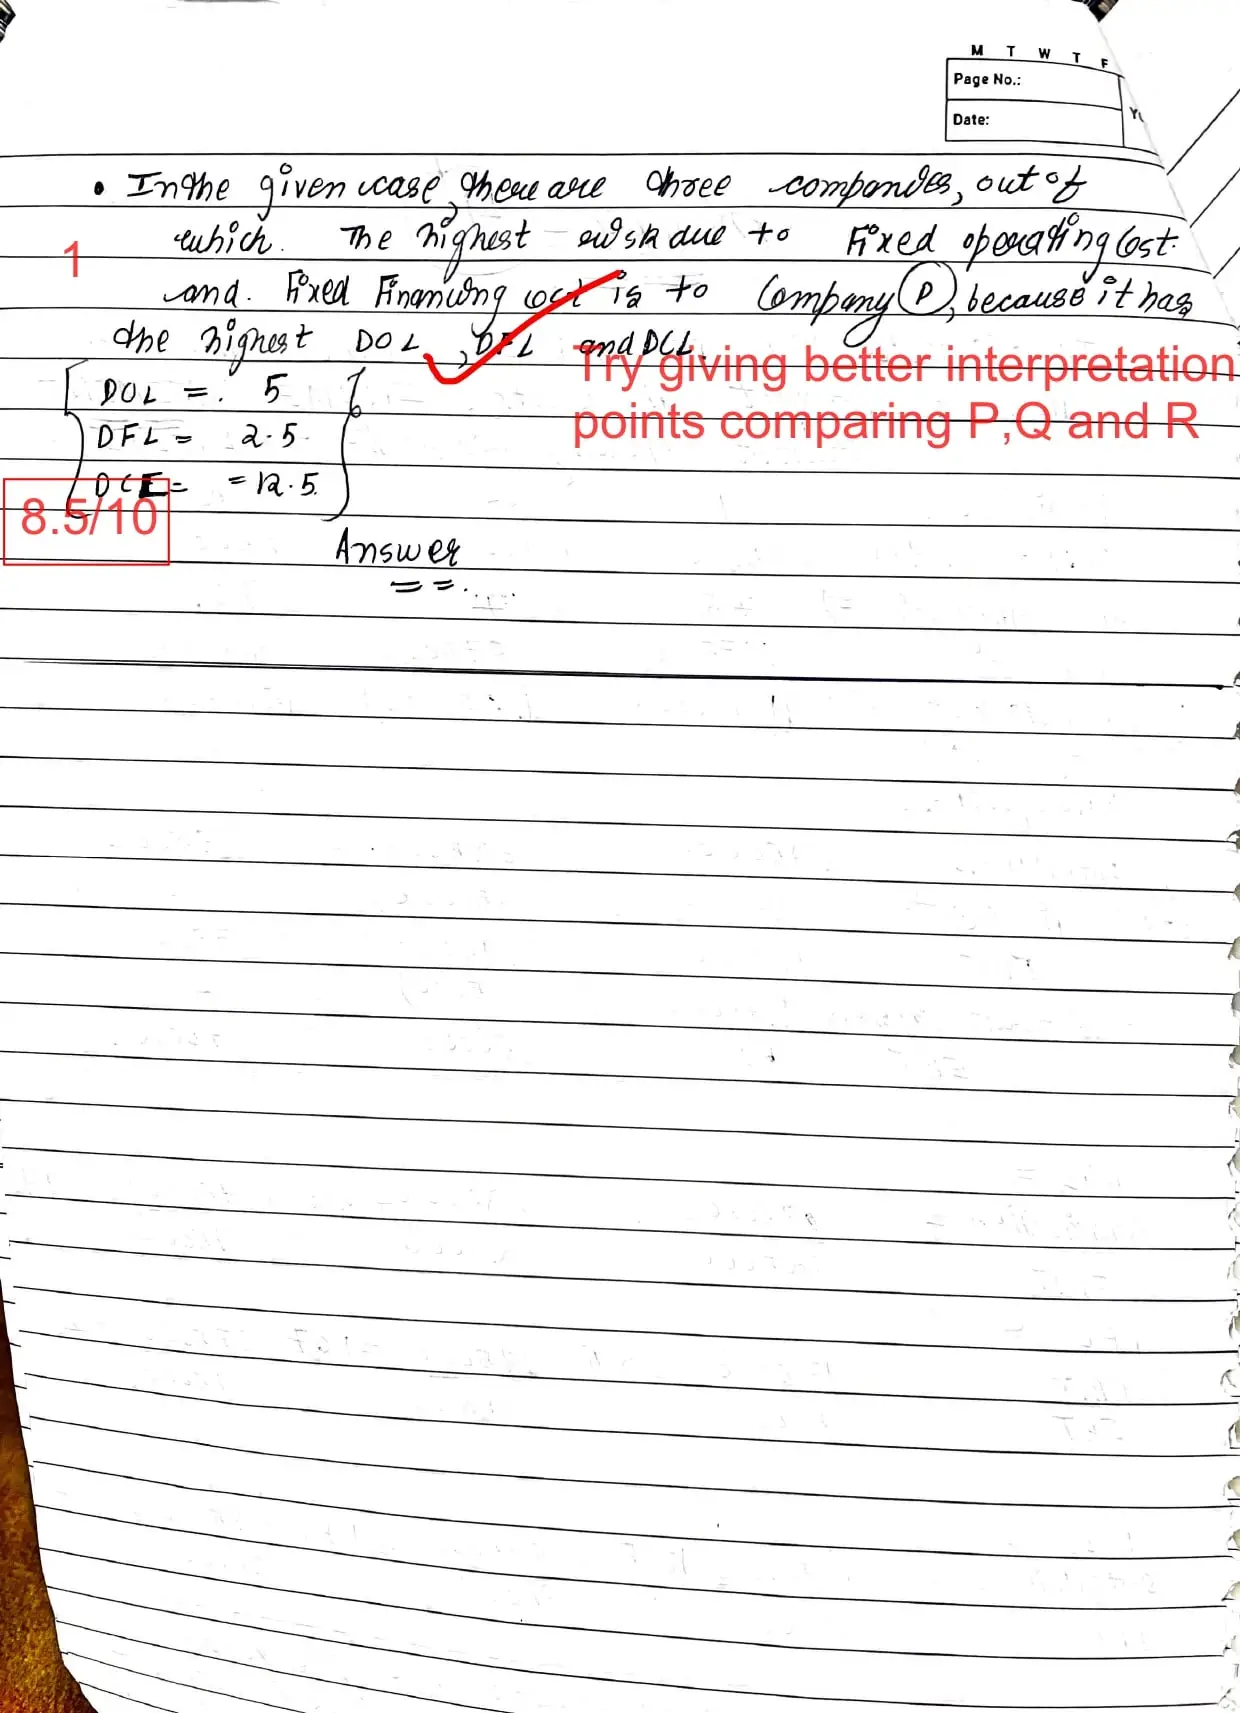 M T W T F
Page No.:
Date:
• In the given case, there are three companies, out of
which. The highest risk due to Fixed operating Cost.
1
and. Fixed Financing cost is to Company P, because it has
the highest DOL, DFL and DCL.
Try giving better interpretation
points comparing P,Q and R
DOL =. 5
DFL = 2.5
DCL = = 12.5.
8.5/10
Answer